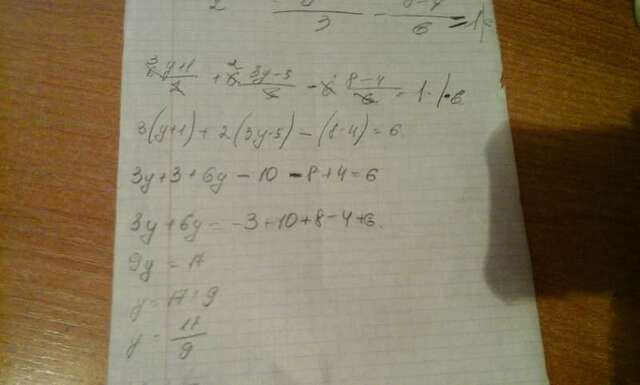 2 3 - 8-4/6 = 1
3 6 y+1/2 + 2 6 3y-5/3 - 6 8-4/6 = 1 · | · 6
3(y+1) + 2(3y-5) - (8-4) = 6
3y + 3 + 6y - 10 - 8 + 4 = 6
3y + 6y = -3 + 10 + 8 - 4 + 6.
9y = 17
y = 17 : 9
y = 17/9